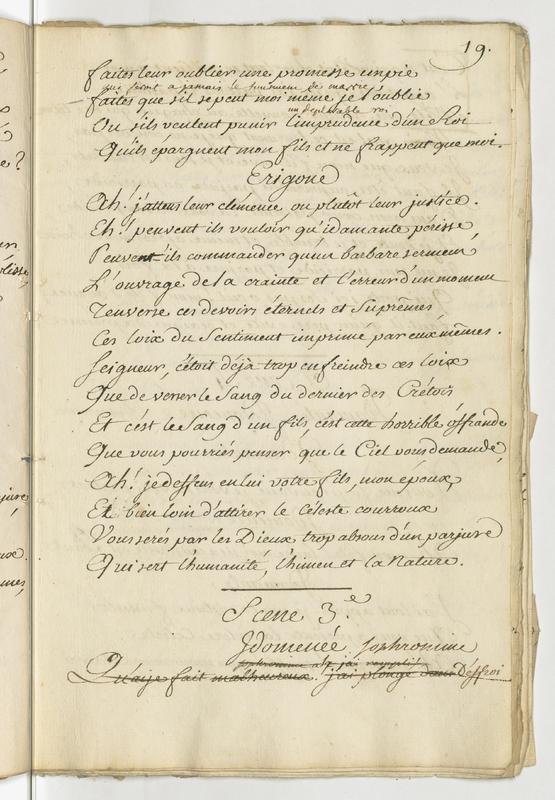 19.
faites leur oublier une promesse impie
que ferait a jamais le
faites que s'il se peut moi même je l'oublie
un deplorable roi
Ou s'ils veulent punir l'imprudence d'un Roi
Qu'ils epargnent mon fils et ne frappent que moi.
Erigone
Ah! j'attens leur clémence, ou plutôt leur justice.
Eh! peuvent ils vouloir qu'idamante périsse,
Peuvent-ils commander qu'un barbare serment
L'ouvrage de la crainte et l'erreur d'un moment
renverse ces devoirs éternels et Suprêmes,
Ces loix du Sentiment imprimé par eux mêmes.
Seigneur, c'étoit déjà trop enfreindre ces loix
Que de verser le Sang du dernier des Crétois
Et c'est le Sang d'un fils, c'est cette horrible offrande
Que vous pourriés penser que le Ciel vous demande,
Ah! je deffens en lui votre fils, mon époux,
Et bien loin d'attirer le céleste courroux
Vous serés par les Dieux trop absous d'un parjure
Qui sert l'humanité, l'himen et la Nature.
Scene 3.e
Idomenée Sophronime
sophronime ah j'ai rempli
Qu'ai je fait malheureux! j'ai plongé dans D'effroi